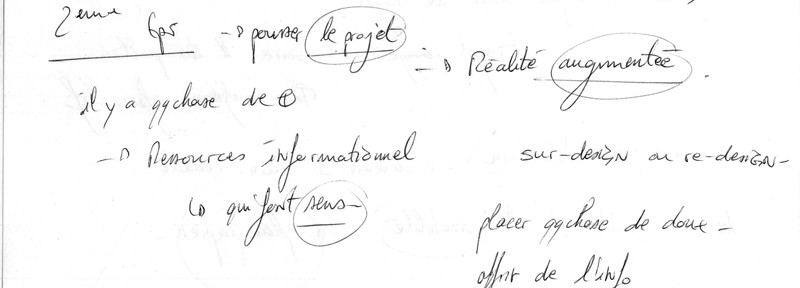 2eme Gpr → pousser le projet
→ Réalité augmentée.
il y a qqchose de ⊕
→ Ressources informationnel
↳ qui font sens
sur-design ou re-design
placer qqchose de doux
offrir de l'info